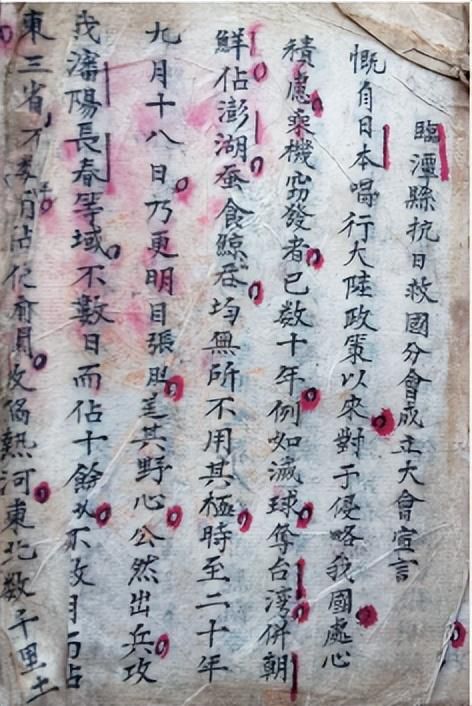 臨潭縣抗日救國分會成立大會宣言
慨自日本啺行大陸政策以來對于侵略我國處心
積慮乘機窃發者已数十年例如滅球奪台湾併朝
鮮佔澎湖蚕食鯨吞均無所不用其極時至二十年
九月十八日乃更明目張胆逞其野心公然出兵攻
我瀋陽長春等域不數日而佔十餘不数月而佔
東三省不佔攻熱河東北数千里土